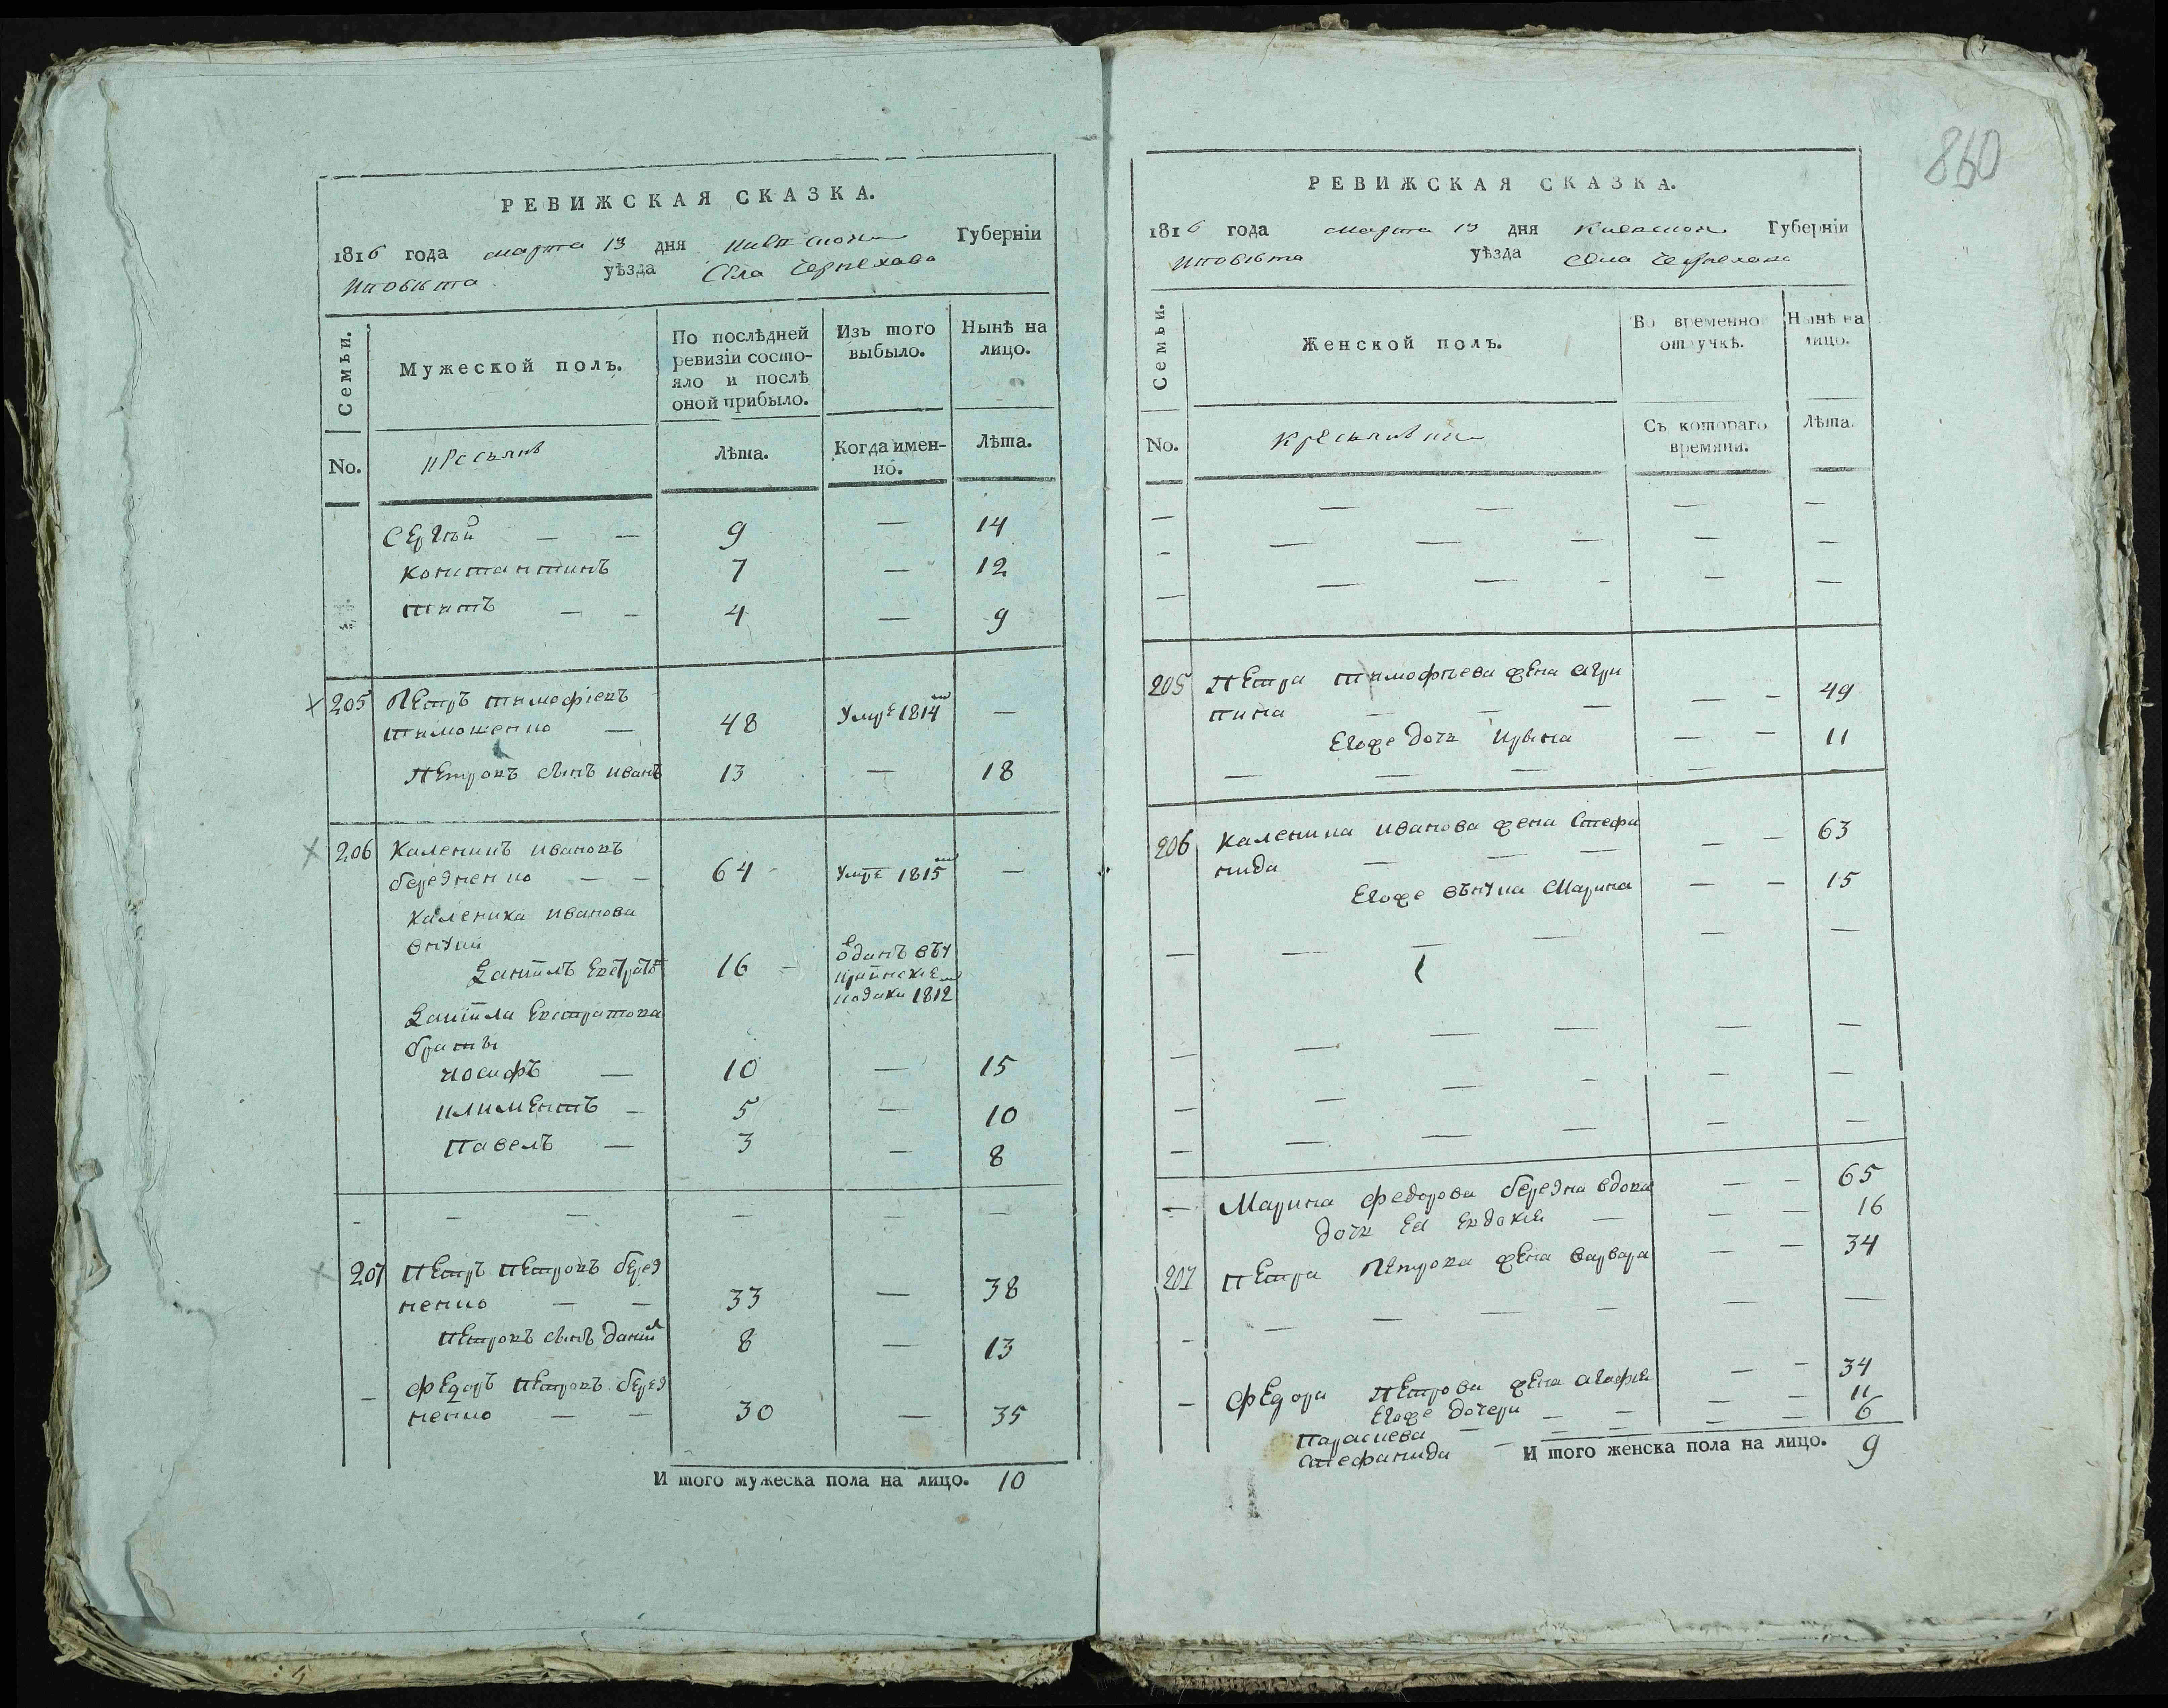 860
РЕВИЖСКАЯ СКАЗКА.
1816 года марта 13 дня Киевской Губерніи
Иповѣта уѣзда Села Чернехова
Семьи.
Мужеской полъ.
По послѣдней ревизіи состо-
яло и послѣ
оной прибыло.
Изъ того
выбыло.
Нынѣ на
лицо.
No.
Лѣта.
Когда имен-
но.
Лѣта.
Сергѣй — — 9 — 14
Константинъ 7 — 12
Титъ — — 4 — 9
205 Петръ Тимофіевъ
Тимошенко — 48 Умре 1814 —
Петровъ сынъ Иванъ 13 — 18
206 Каленикъ Ивановъ
бередненко — — 64 Умре 1815 —
Каленика Иванова
внуки
Даніилъ 16
1812
Даніила Евстратова
братъи
Иосифъ — 10 — 15
Климентъ — 5 — 10
Павелъ — 3 — 8
207 Петръ Петровъ беред
ненко — — 33 — 38
Петровъ сынъ Даніил 8 — 13
— Федоръ Петровъ беред
ненко — — 30 — 35
И того мужеска пола на лицо. 10
РЕВИЖСКАЯ СКАЗКА.
1816 года марта 13 дня Киевской Губерніи
Иповѣта уѣзда Села Чернехова
Семьи.
Женской полъ.
Во временно
отлучкѣ.
Нынѣ на
лицо.
No.
Съ котораго
времяни.
Лѣта.
205 Петра Тимофѣева жена Агри
пина — — — — — 49
Егоже дочь Ирина — — 11
206 Каленика Иванова жена Стефа
нида — — — — — 63
Егоже внука Марина — — 15
— Марина Федорова бередна вдова — — 65
дочь Ея Евдокія — — — 16
207 Петра Петрова жена Варвара — — 34
— Федора Петрова жена Агафія — — 34
Егоже дочери
Параскева — — 11
Стефанида — — 6
И того женска пола на лицо. 9